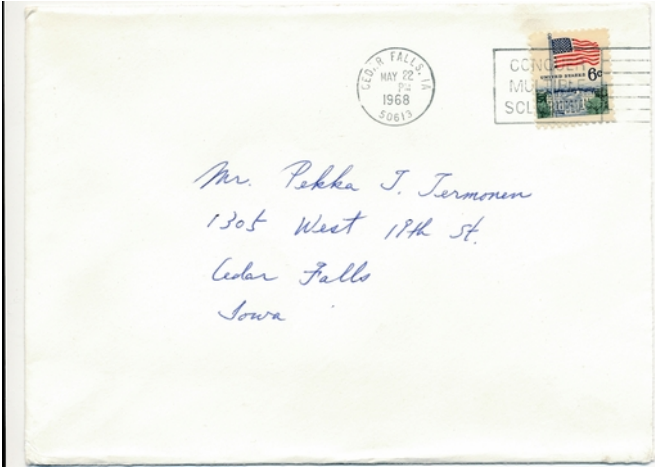 CEDAR FALLS, IA
MAY 22
PM
1968
50613
CONQUER
MULTIPLE
SCLEROSIS
UNITED STATES 6c
Mr. Pekka J. Termonen
1305 West 19th St.
Cedar Falls
Iowa